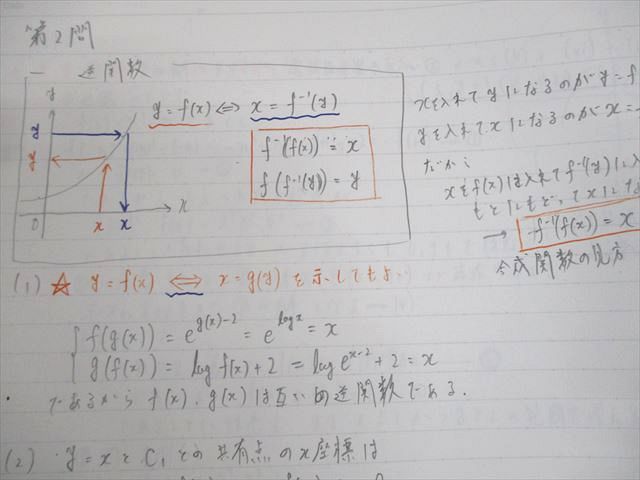 第2問
逆関数
y = f(x) ⇔ x = f⁻¹(y)
f⁻¹(f(x)) = x
f(f⁻¹(y)) = y
y
y
y
O
x
x
x
xを入れてyになるのがy=f
yを入れてxになるのがx=
だから
xをf(x)に入れてf⁻¹(y)に入
もとにもどってxにな
→ f⁻¹(f(x)) = x
合成関数の見方
(1) ☆ y = f(x) ⇔ x = g(y) を示してもよい
f(g(x)) = e^{g(x)-2} = e^{log x} = x
g(f(x)) = log f(x) + 2 = log e^{x-2} + 2 = x
であるから f(x), g(x) は互いの逆関数である.
(2) y = x と C₁ との共有点のx座標は